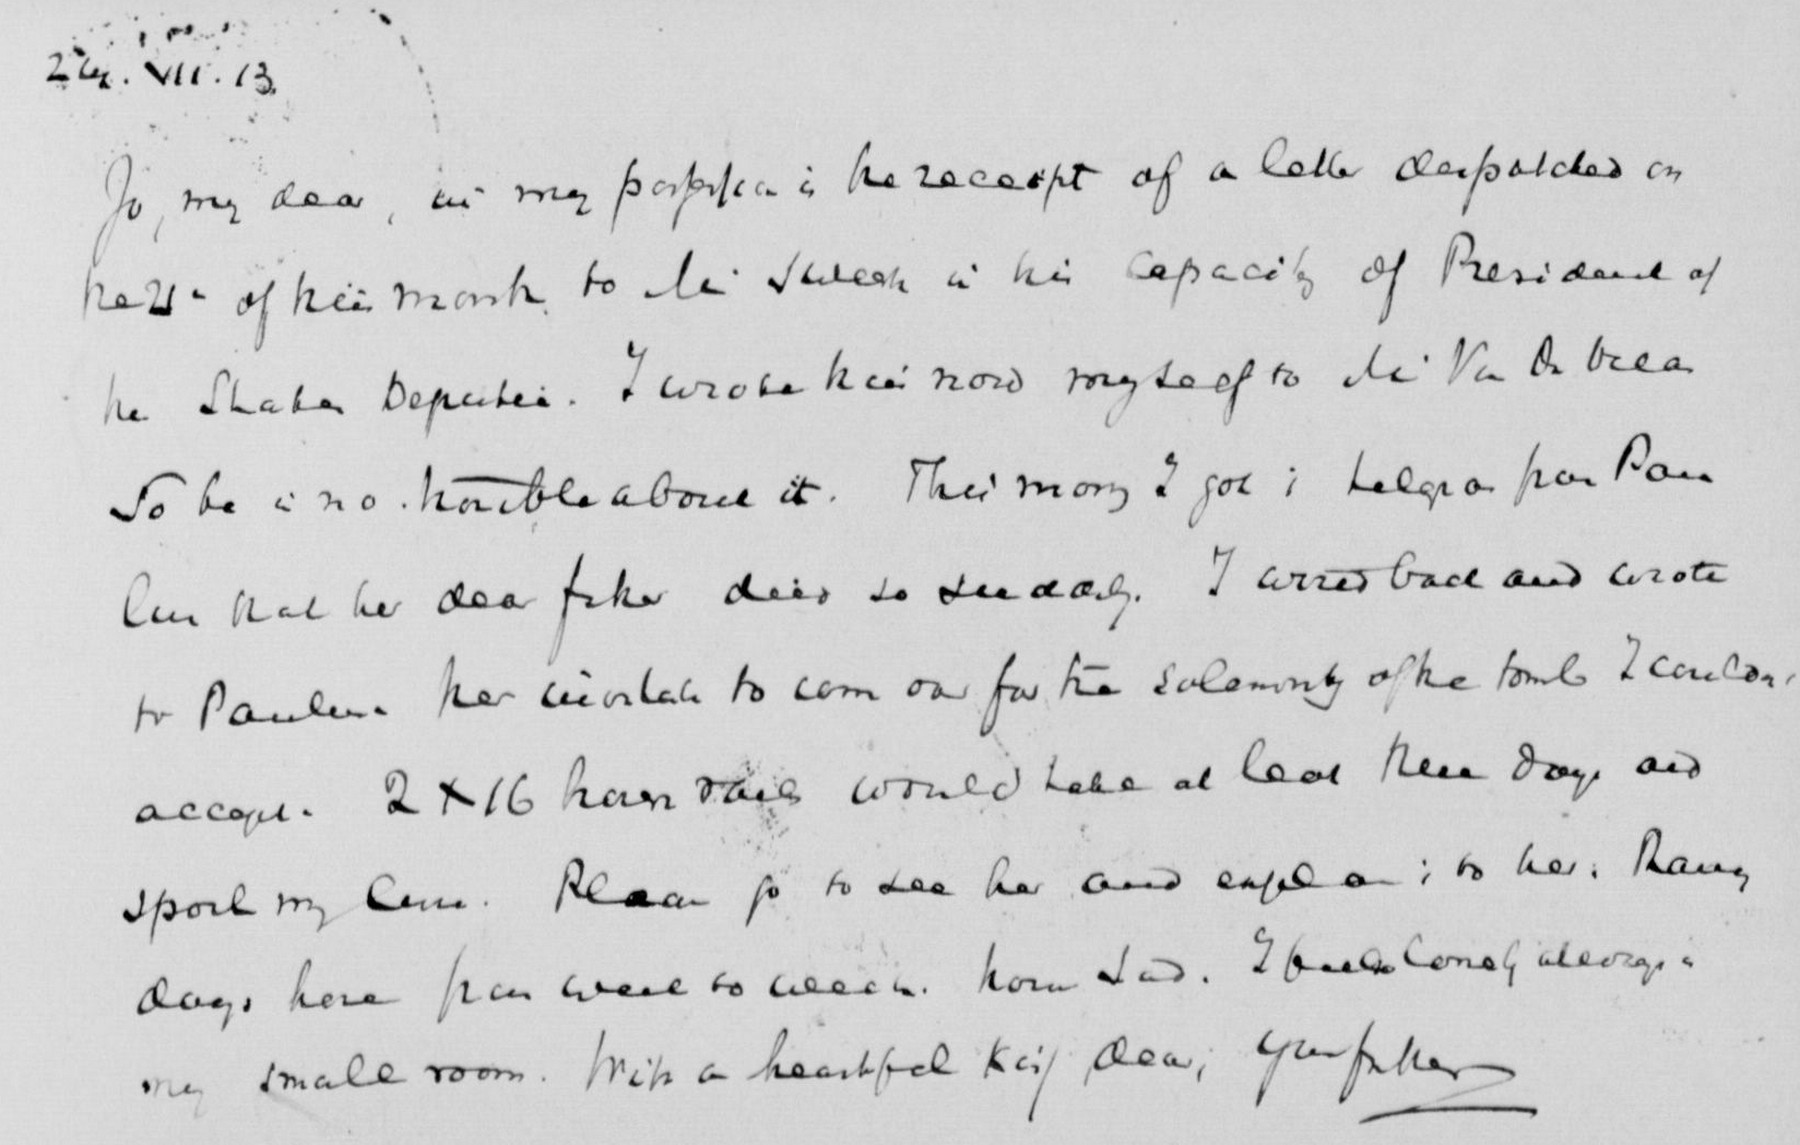 24. VII. 13.
Jo, my dear, in my portfolio is the receipt of a letter despatched on
the 21 of this month to Mr Sweerts in his capacity of President of
the States Deputies. I wrote this now myself to Mr Van
So he is no trouble about it. This morng I got a telegram from Pau
line that her dear father died so suddenly. I wired back and wrote
to Pauline her invitation to come over for the solemnity of the tomb I couldn't
accept. 2 x 16 hours rails would take at least three days and
spoil my cure. Please go to see her and explain it to her. Rainy
days here from week to week. how sad. I feel lonely always in
my small room. With a heartfeel Kiss, dear, Your father